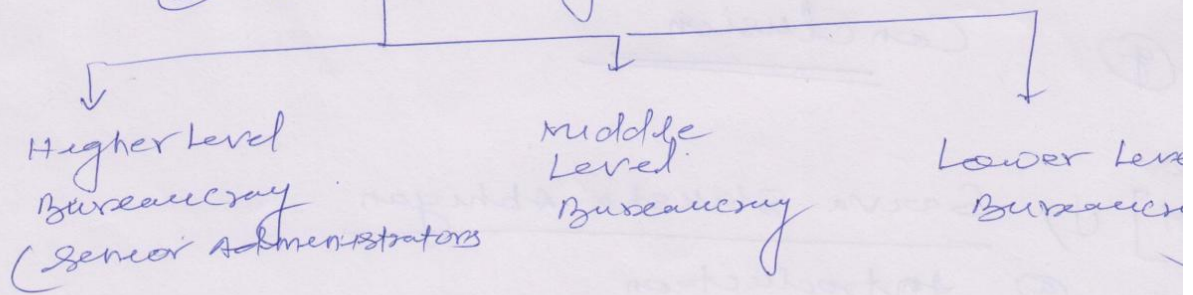 Higher Level
Bureaucracy
(Senior Administrators
Middle
Level
Bureaucracy
Lower Leve
Bureaucra